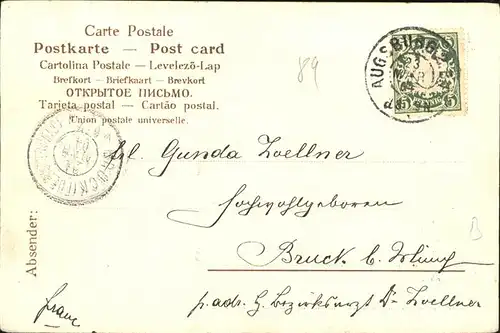 Carte Postale
Postkarte — Post card
Cartolina Postale — Levelező-Lap
Brefkort — Briefkaart — Brevkort
ОТКРЫТОЕ ПИСЬМО.
Tarjeta postal — Cartão postal.
Union postale universelle.
89
AUGSBURG
5
Frl. Gunda Zoellner
Hochwohlgeboren
Bruck b. Erlang
p. adr. H. Bezirksarzt Dr Zoellner
Absender:
franco
B